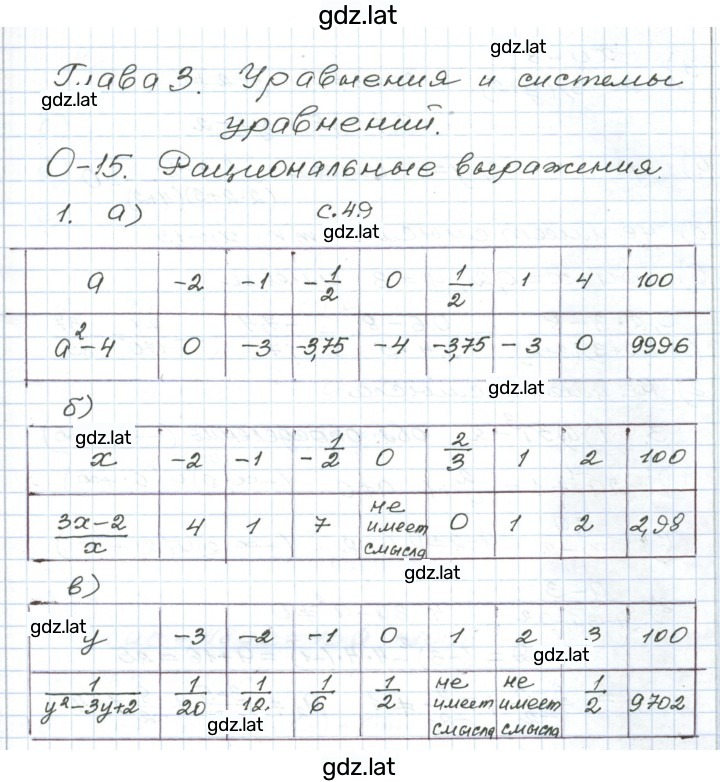 gdz.lat
gdz.lat
Глава 3. Уравнения и системы
gdz.lat
уравнений.
О-15. Рациональные выражения.
1. а) с.49
gdz.lat
a -2 -1 -1/2 0 1/2 1 4 100
a²-4 0 -3 -3,75 -4 -3,75 -3 0 9996
gdz.lat
б)
gdz.lat
x -2 -1 -1/2 0 2/3 1 2 100
(3x-2)/x 4 1 7 не имеет смысла 0 1 2 2,98
gdz.lat
в)
gdz.lat
y -3 -2 -1 0 1 2 3 100
gdz.lat
1/(y²-3y+2) 1/20 1/12 1/6 1/2 не имеет смысла не имеет смысла 1/2 9702
gdz.lat
gdz.lat